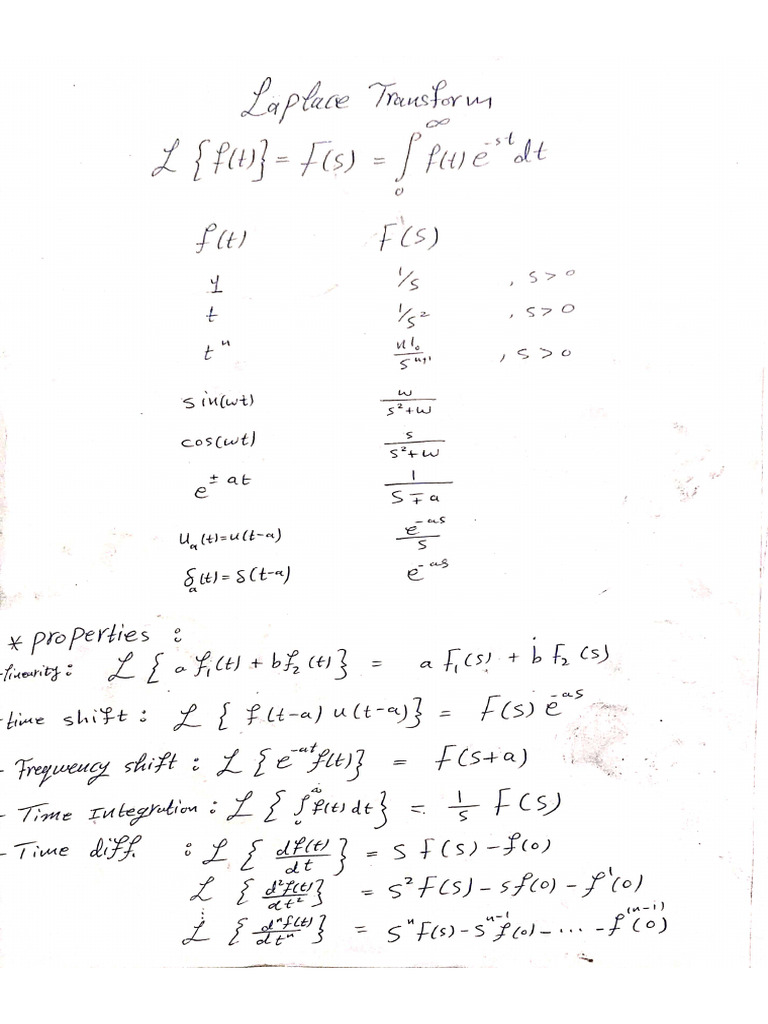 Laplace Transform
ℒ {f(t)} = F(s) = ∫₀^∞ f(t) e^-st dt
f(t) F(s)
1 1/s , s>0
t 1/s² , s>0
t^n n!/s^(n+1) , s>0
sin(wt) w/(s²+w)
cos(wt) s/(s²+w)
e^±at 1/(s∓a)
u_a(t)=u(t-a) e^-as/s
δ_a(t)=δ(t-a) e^-as
* properties :
-linearity: ℒ { a f₁(t) + b f₂(t)} = a F₁(s) + b F₂(s)
-time shift: ℒ { f(t-a) u(t-a)} = F(s) e^-as
- Frequency shift : ℒ {e^-at f(t)} = F(s+a)
- Time Integration : ℒ { ∫₀^∞ f(t) dt} = 1/s F(s)
- Time diff. : ℒ { df(t)/dt } = s F(s) - f(0)
ℒ { d²f(t)/dt² } = s² F(s) - s f(0) - f'(0)
ℒ { d^n f(t)/dt^n } = s^n F(s) - s^n-1 f(0) - ... - f^(n-1)(0)